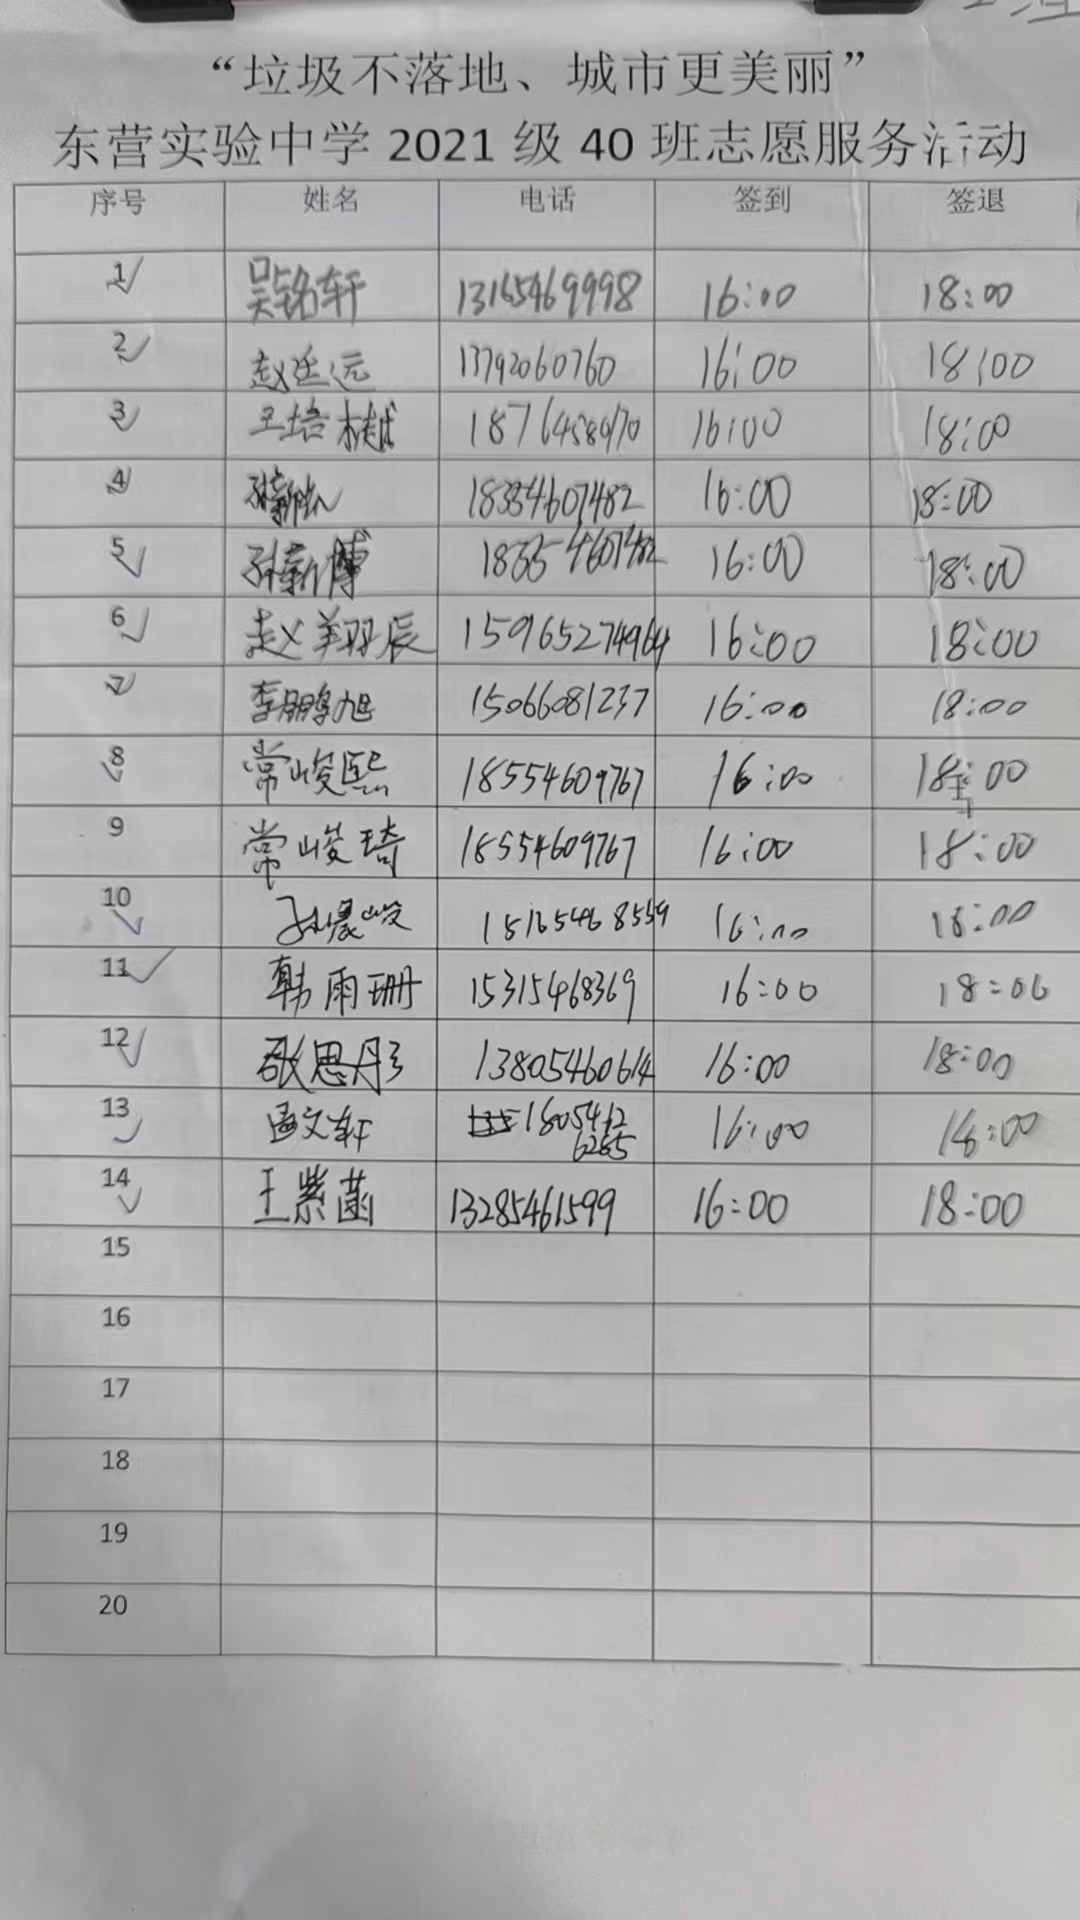 “垃圾不落地、城市更美丽”
东营实验中学 2021 级 40 班志愿服务活动
序号 姓名 电话 签到 签退
1 吴铭轩 13165469998 16:00 18:00
2 赵廷远 13792060760 16:00 18:00
3 王培樾 16:00 18:00
4 16:00 18:00
5 孙薪博 16:00 18:00
6 赵翔辰 15965274964 16:00 18:00
7 李鹏旭 15066081237 16:00 18:00
8 常峻熙 18554609767 16:00 18:00
9 常峻琦 18554609767 16:00 18:00
10 孙晨峻 16:00 18:00
11 韩雨珊 15315468369 16:00 18:00
12 张思彤 13805460614 16:00 18:00
13 文轩 16:00 18:00
6265
14 王紫菡 13285461599 16:00 18:00
15
16
17
18
19
20